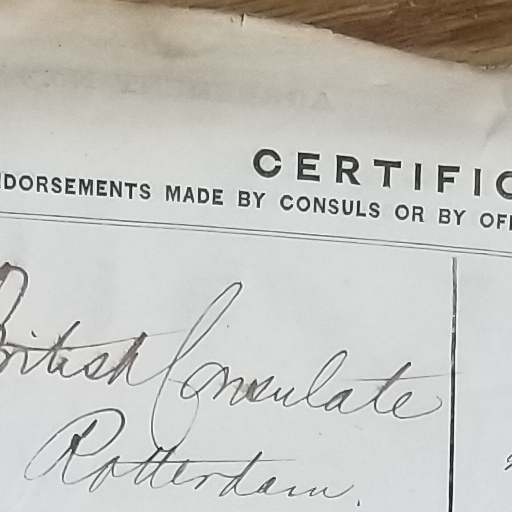 CERTIFIC
NDORSEMENTS MADE BY CONSULS OR BY OFF
British Consulate
Rotterdam.